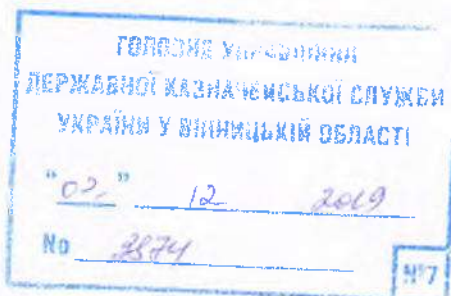 ГОЛОВНЕ УПРАВЛІННЯ
ДЕРЖАВНОЇ КАЗНАЧЕЙСЬКОЇ СЛУЖБИ
УКРАЇНИ У ВІННИЦЬКІЙ ОБЛАСТІ
"02" 12 2019
No
№7